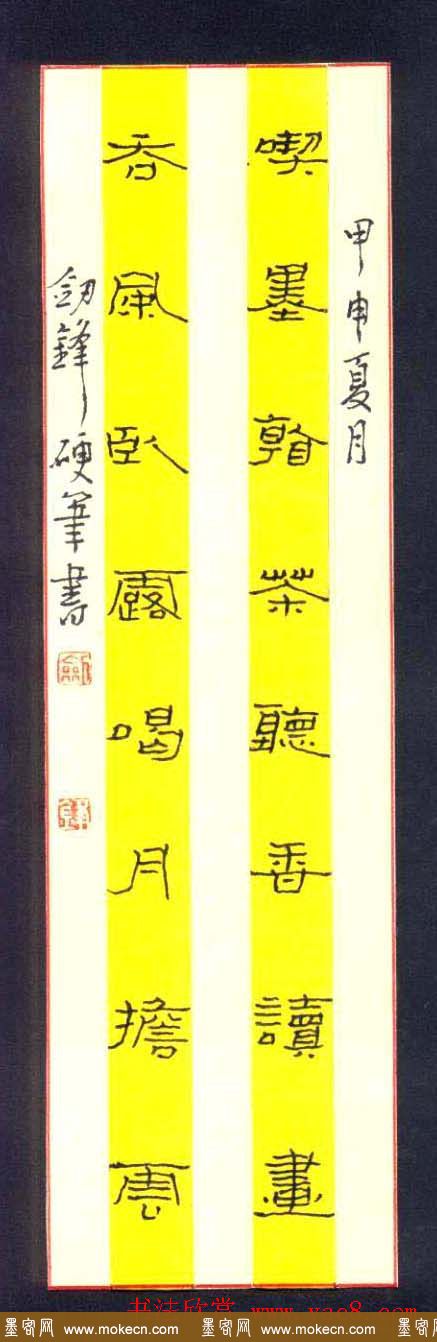 甲申夏月
喫墨看茶聽香讀畫
吞風臥露喝月擔雲
劍鋒硬筆書
书法欣赏 www.yac8.com
墨客网 www.mokecn.com 墨客网 www.mokecn.com 墨客